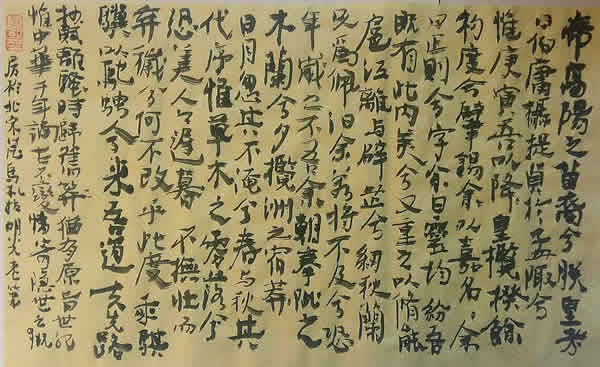 帝高陽之苗裔兮朕皇考
曰伯庸攝提貞於孟陬兮
惟庚寅吾以降皇攬揆餘
初度兮肇錫余以嘉名名余
曰正則兮字余曰靈均紛吾
既有此內美兮又重之以脩能
扈江離與辟芷兮紉秋蘭
以爲佩汩余若將不及兮恐
年歲之不吾余朝搴阰之
木蘭兮夕攬洲之宿莽
日月忽其不淹兮春與秋其
代序惟草木之零落兮
恐美人之遲暮不撫壯而
棄穢兮何不改乎此度乘騏
驥以馳騁兮來吾道夫先路
騷時屈原
惟中華千年不變情
於北京